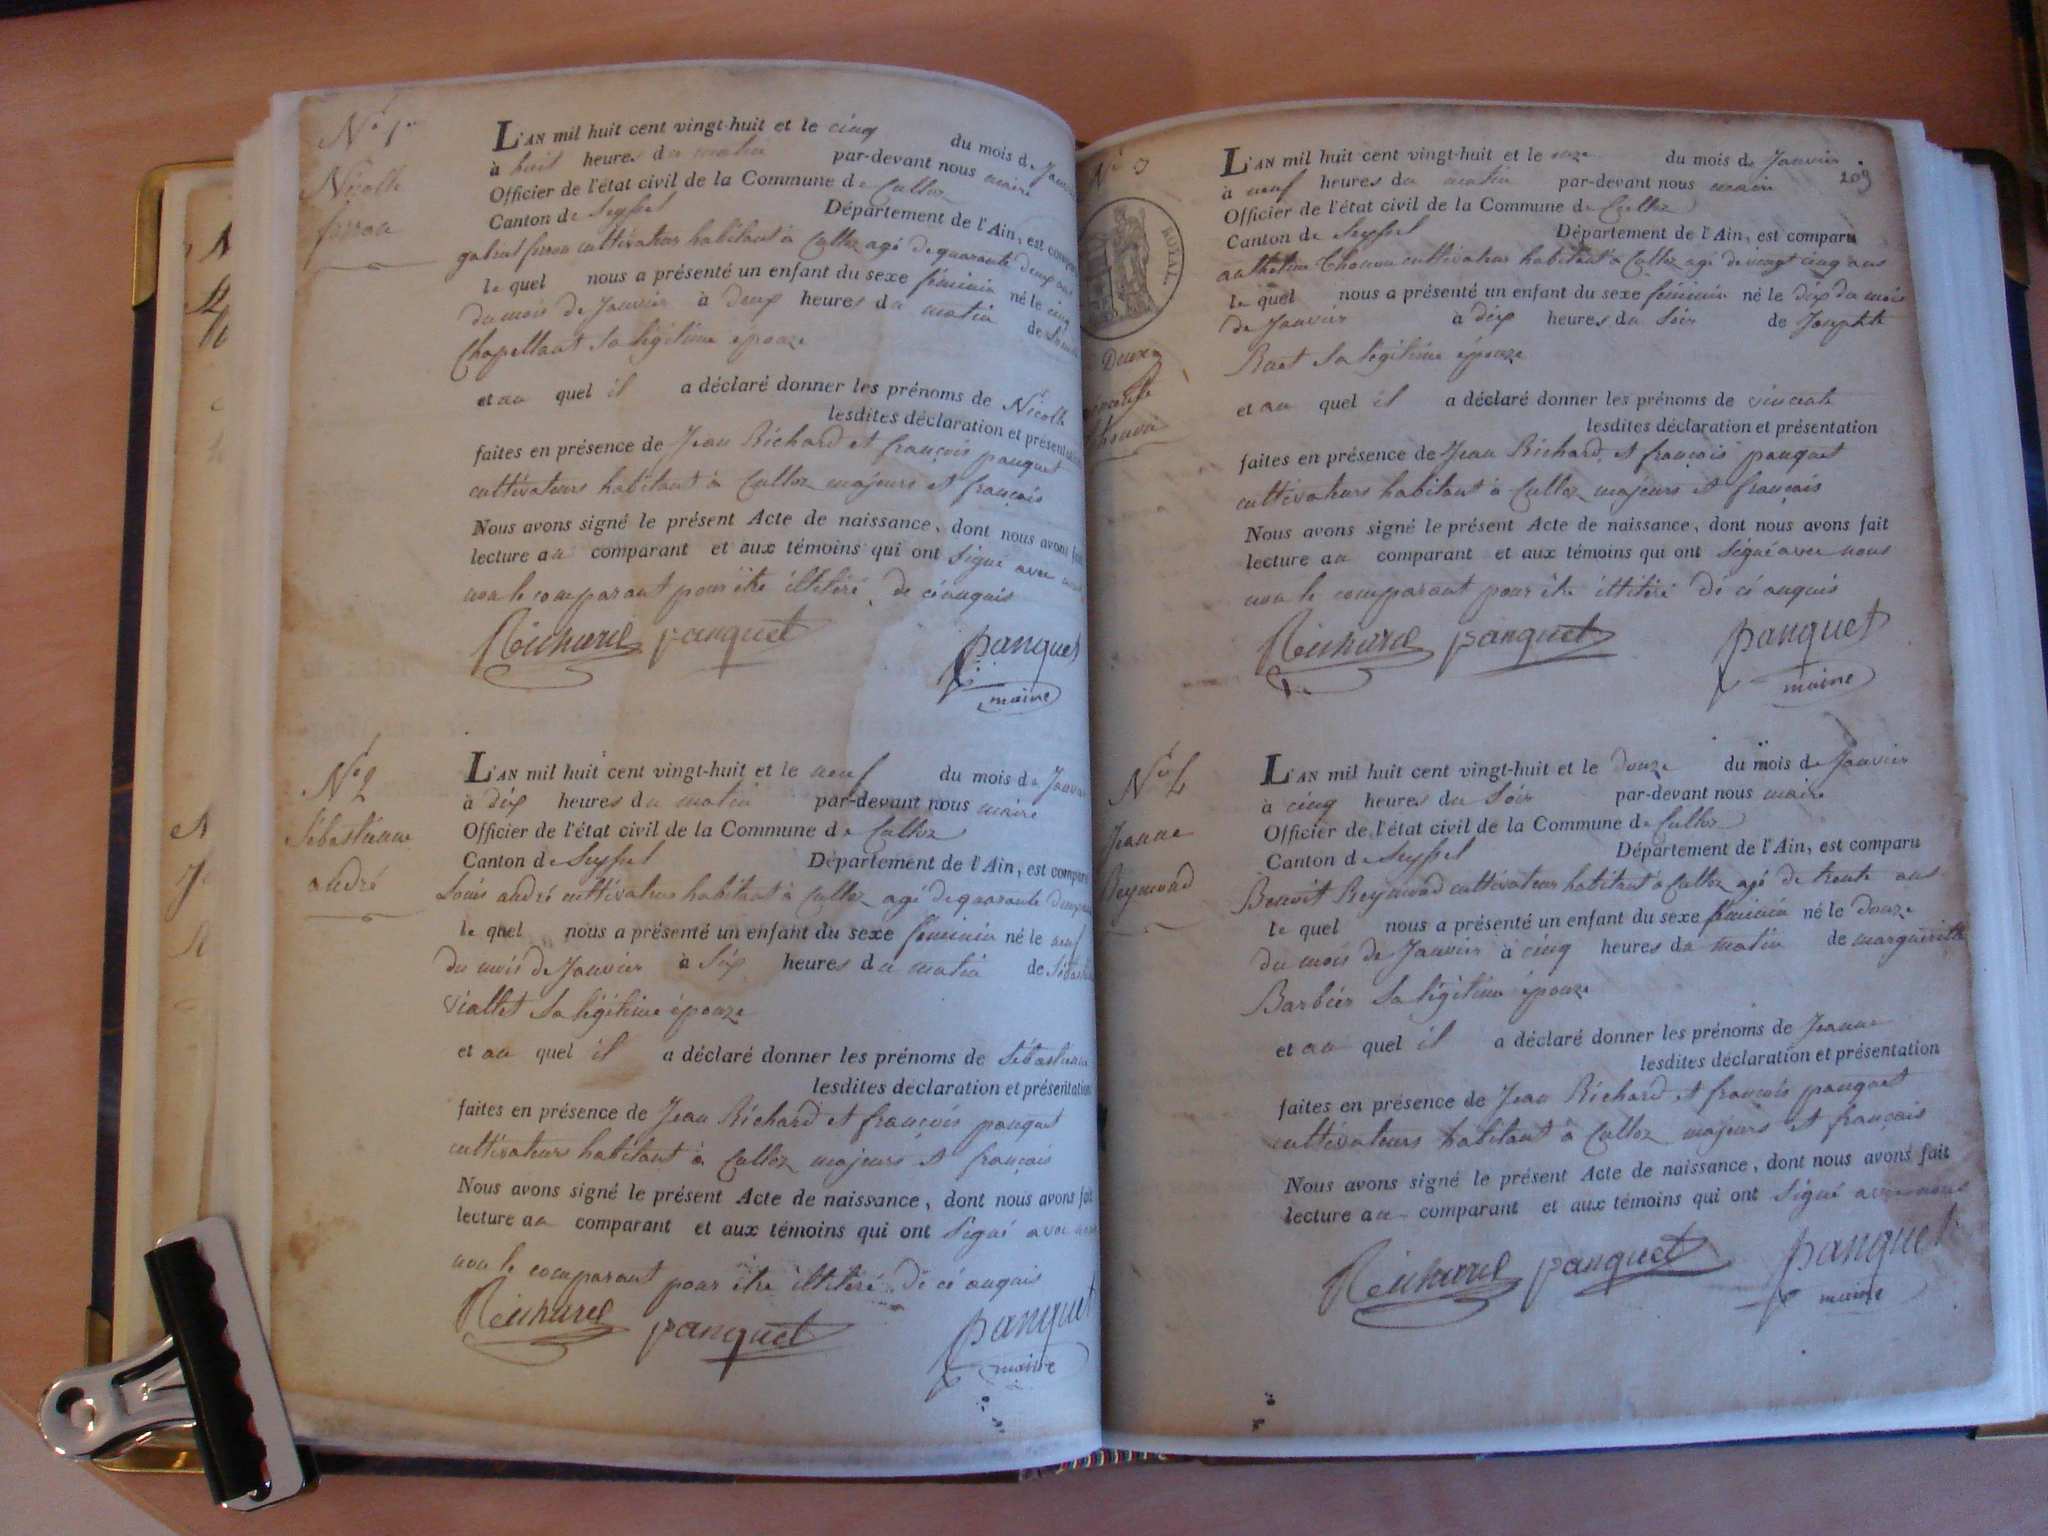 No 1er
Nicolle
ferron
L'AN mil huit cent vingt-huit et le cinq du mois de Janvier
à huit heures du matin par-devant nous maire
Officier de l'état civil de la Commune de Culloz
Canton de Seyssel Département de l'Ain, est comparu
gabriel ferron cultivateur habitant à Culloz agé de quarante deux ans
le quel nous a présenté un enfant du sexe féminin né le cinq
du mois de Janvier à deux heures du matin de
Chapellant sa légitime épouze
et au quel il a déclaré donner les prénoms de Nicolle
lesdites déclaration et présentation
faites en présence de Jean Richard et françois panquet
cultivateurs habitant à Culloz majeurs et français
Nous avons signé le présent Acte de naissance, dont nous avons fait
lecture au comparant et aux témoins qui ont signé avec nous
non le comparant pour être illitéré de ce enquis
Richard panquet panquet
maire
No 2
Sébastienne
andré
L'AN mil huit cent vingt-huit et le neuf du mois de Janvier
à dix heures du matin par-devant nous maire
Officier de l'état civil de la Commune de Culloz
Canton de Seyssel Département de l'Ain, est comparu
Louis andré cultivateur habitant à Culloz agé de quarante deux
le quel nous a présenté un enfant du sexe féminin né le neuf
du mois de Janvier à six heures du matin de
viallet sa légitime épouze
et au quel il a déclaré donner les prénoms de Sébastienne
lesdites déclaration et présentation
faites en présence de Jean Richard et françois panquet
cultivateurs habitant à Culloz majeurs et français
Nous avons signé le présent Acte de naissance, dont nous avons fait
lecture au comparant et aux témoins qui ont signé avec nous
non le comparant pour être illitéré de ce enquis
Richard panquet panquet
maire
209
No 3
ROYAL
L'AN mil huit cent vingt-huit et le onze du mois de Janvier
à neuf heures du matin par-devant nous maire
Officier de l'état civil de la Commune de Culloz
Canton de Seyssel Département de l'Ain, est comparu
anthelme Chouvin cultivateur habitant à Culloz agé de vingt cinq ans
le quel nous a présenté un enfant du sexe féminin né le dix du mois
de Janvier à dix heures du soir de Josephte
sa légitime épouze
et au quel il a déclaré donner les prénoms de vincente
lesdites déclaration et présentation
faites en présence de Jean Richard et françois panquet
cultivateurs habitant à Culloz majeurs et français
Nous avons signé le présent Acte de naissance, dont nous avons fait
lecture au comparant et aux témoins qui ont signé avec nous
non le comparant pour être illitéré de ce enquis
Richard panquet panquet
maire
No 4
Jeanne
Reymond
L'AN mil huit cent vingt-huit et le douze du mois de Janvier
à cinq heures du soir par-devant nous maire
Officier de l'état civil de la Commune de Culloz
Canton de Seyssel Département de l'Ain, est comparu
Benoit Reymond cultivateur habitant à Culloz agé de trente ans
le quel nous a présenté un enfant du sexe féminin né le douze
du mois de Janvier à cinq heures du matin de marguerite
Barbier sa légitime épouze
et au quel il a déclaré donner les prénoms de Jeanne
lesdites déclaration et présentation
faites en présence de Jean Richard et françois panquet
cultivateurs habitant à Culloz majeurs et français
Nous avons signé le présent Acte de naissance, dont nous avons fait
lecture au comparant et aux témoins qui ont signé avec nous
Richard panquet panquet
maire